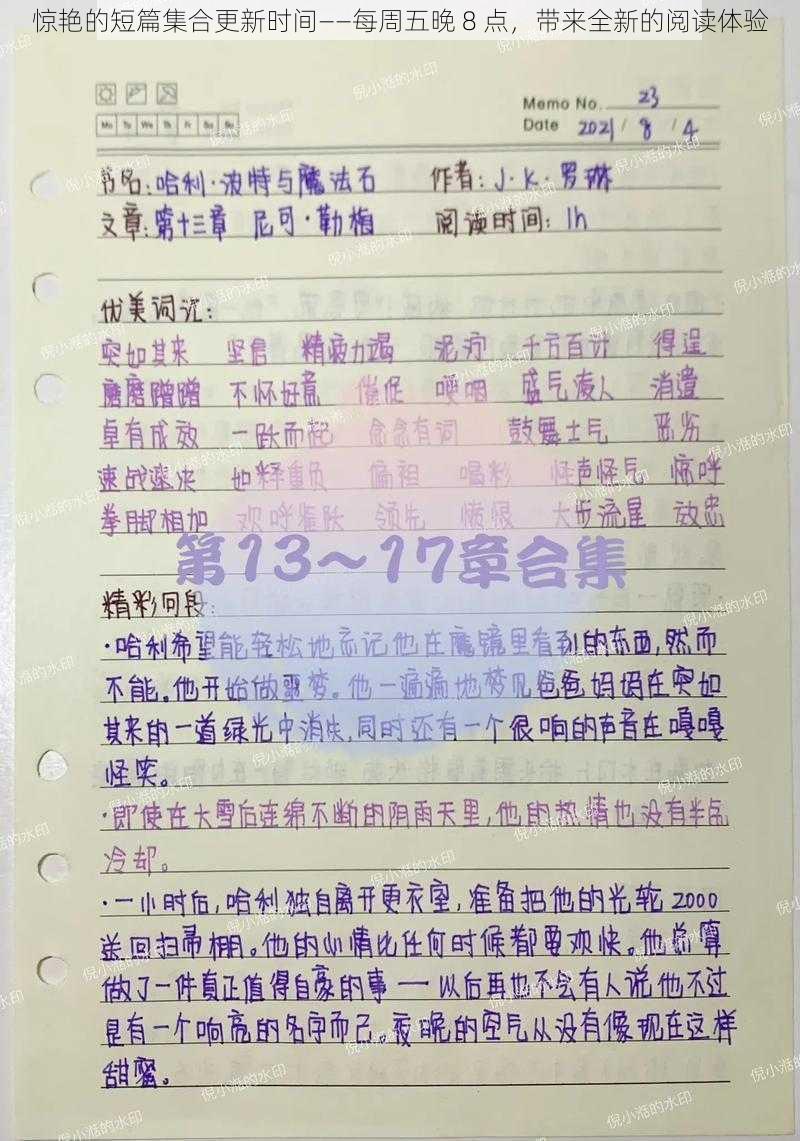 惊艳的短篇集合更新时间——每周五晚 8 点，带来全新的阅读体验
Memo No. 23
Mo Tu We Th Fr Sa Su
Date 2021 / 8 / 4
书名：哈利·波特与魔法石 作者：J·K·罗琳
文章：第十三章 尼可·勒梅 阅读时间：1h
优美词汇：
突如其来 坚信 精疲力竭 泥泞 千方百计 得逞
磨磨蹭蹭 不怀好意 催促 哽咽 盛气凌人 消遣
卓有成效 一跃而起 念念有词 鼓舞士气 恶劣
速战速决 如释重负 偏袒 喝彩 怪声怪气 惊呼
拳脚相加 欢呼雀跃 领先 愤恨 大步流星 放忠
第13～17章合集
精彩回段：
·哈利希望能轻松地忘记他在魔镜里看到的东西，然而
不能。他开始做噩梦。他一遍遍地梦见爸爸妈妈在突如
其来的一道绿光中消失，同时还有一个很响的声音在嘎嘎
怪笑。
·即使在大雪后连绵不断的阴雨天里，他的热情也没有半点
冷却。
·一小时后，哈利独自离开更衣室，准备把他的光轮2000
送回扫帚棚。他的心情比任何时候都要欢快。他总算
做了一件真正值得自豪的事——以后再也不会有人说他不过
是有一个响亮的名字而已。夜晚的空气从没有像现在这样
甜蜜。
倪小湉的水印